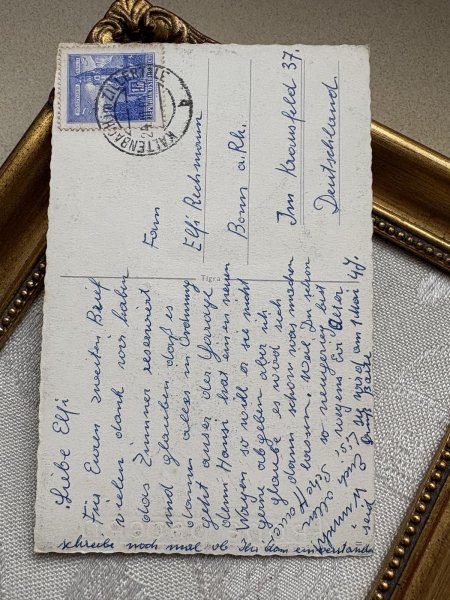 KALTENBACH IM ZILLERTAL
Frau
Elfi Reichmann
Bonn a. Rh.
Im Krausfeld 37.
Deutschland.
Tigra
Liebe Elfi
Für Euren zweiten Brief
vielen dank wir haben
das Zimmer reserviert
und glauben daß es
dann alles in Ordnung
geht ausser der Garage
denn Hansi hat einen neuen
Wagen so will er sie nicht
gerne abgeben aber ich
glaube es wird sich
dann schon was machen
lassen. weil Du schon
so neugierig bist
wegens Alter
Sie wird am 1 Mai 40 J.
schreibe noch mal ob Ihr dam einverstanden
seid